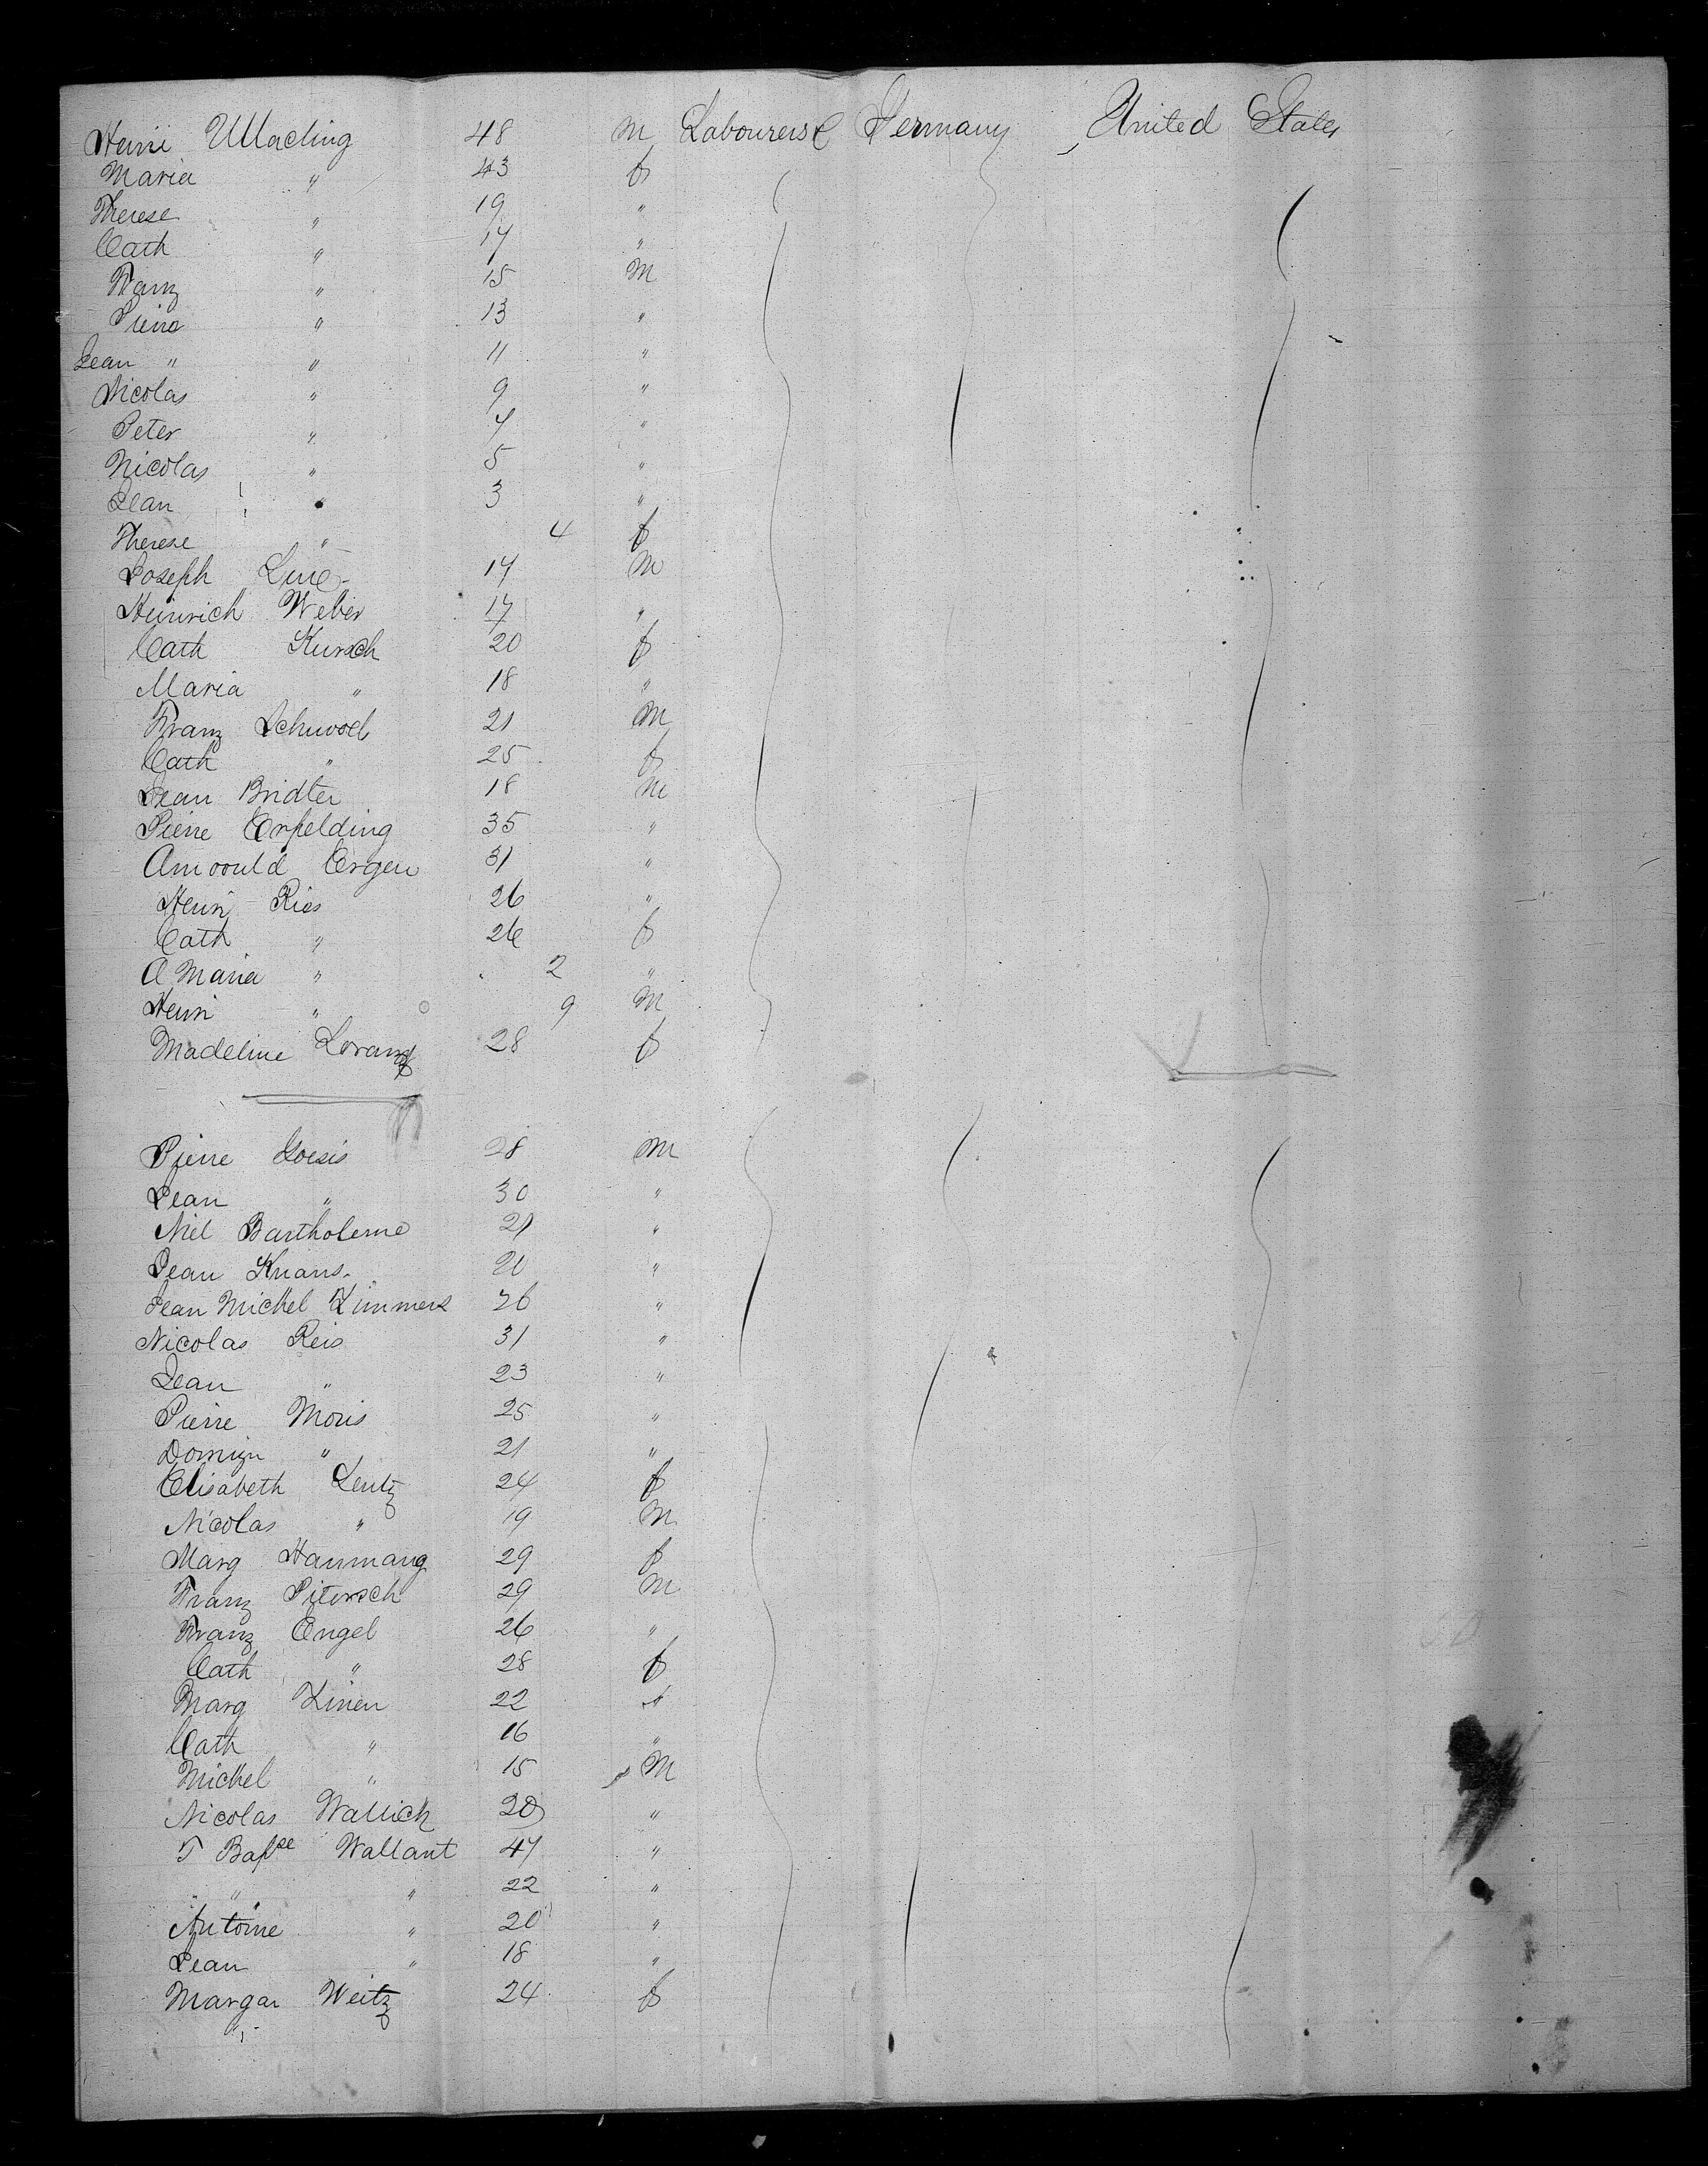 Henri Ullacling 48 m Labourers & Germany United States
Maria " 43 f
Therese " 19 "
Cath " 17 "
Franz " 15 m
Pierre " 13 "
Jean " " 11 "
Nicolas " 9 "
Peter " 7 "
Nicolas " 5 "
Jean " 3 "
Therese " 4 f
Joseph 17 m
Heinrich Weber 17 "
Cath Kursch 20 f
Maria " 18 "
Franz Schwoel 21 m
Cath " 25 f
Jean Bridter 18 m
Pierre Erpelding 35 "
Arnoould Ergen 31 "
Henri Ries 26 "
Cath " 26 f
A Maria " 2 "
Henri " 9 m
Madeline Lorang 28 f
Pierre Goesis 28 m
Jean " 30 "
Niel Bartholeme 21 "
Jean Knaus. 20 "
Jean Michel Zimmers 26 "
Nicolas Reis 31 "
Jean " 23 "
Pierre Moris 25 "
Domign " 21 "
Elisabeth Lentz 24 f
Nicolas " 19 m
Marg Hanmang 29 f
Franz Pitersch 29 m
Franz Engel 26 "
Cath " 28 f
Marg Zinen 22 "
Cath " 16 "
Michel " 15 m
Nicolas Wallich 20 "
J Bapse Wallant 47 "
" " " 22 "
Antoine " 20 "
Jean " 18 "
Margar Weitz 24 f